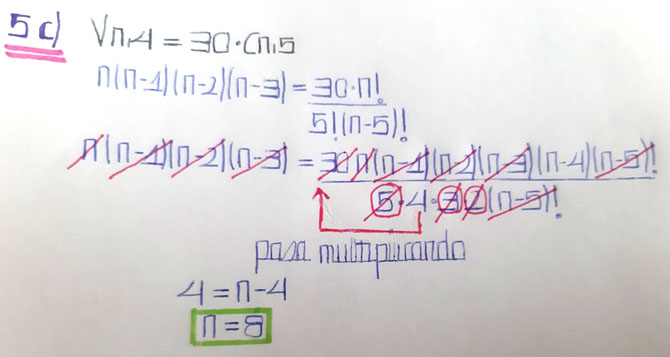 5c) Vn,4 = 30·Cn,5
n(n-1)(n-2)(n-3) = 30·n!
5!(n-5)!
n(n-1)(n-2)(n-3) = 30n(n-1)(n-2)(n-3)(n-4)(n-5)!
5·4·32(n-5)!
pasa multiplicando
4 = n-4
n = 8